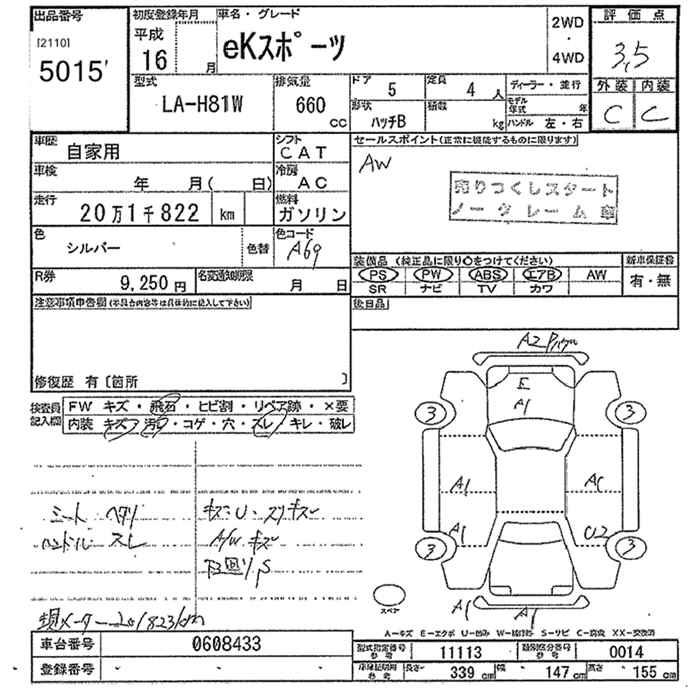 出品番号
[2110]
5015'
初度登録年月
平成
16 月
車名・グレード
eKスポーツ
2WD
・
4WD
評価点
3,5
外装 内装
C C
型式
LA-H81W
排気量
660 cc
ドア 5
定員 4 人
形状 ハッチB
積数 kg
ディーラー・並行
モデル年式 年
ハンドル 左・右
車歴 自家用
シフト CAT
車検 年 月( 日)
冷房 AC
走行 20万1千822 km
燃料 ガソリン
色 シルバー 色替
色コード A69
R券 9,250円
名変通知期限 月 日
セールスポイント(正常に機能するものに限ります)
AW
売りつくしスタート
ノークレーム車
装備品 (純正品に限り○をつけてください)
PS PW ABS エアB AW
SR ナビ TV カワ
新車保証書
有・無
後日品
注意事項申告欄(不具合内容等は具体的に記入して下さい)
修復歴 有〔箇所 〕
検査員記入欄
FW キズ・飛石・ヒビ割・リペア跡・×要
内装 キズ・汚レ・コゲ・穴・スレ・キレ・破レ
シート ヘタリ
ハンドル スレ
キズ・U・スリキズ
A/W キズ
下回り S
A2
E
A1
3 3
A1
A1
U2
3 3
A1
A1
スペア
A−キズ E−エクボ U−凹み W−補修跡 S−サビ C−腐食 XX−交換済
車台番号 0608433
登録番号
型式指定番号 11113
類別区分番号 0014
長さ 339 cm
幅 147 cm
高さ 155 cm